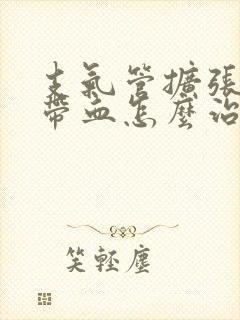 支氣管擴張
帶血怎麼治
笑輕塵